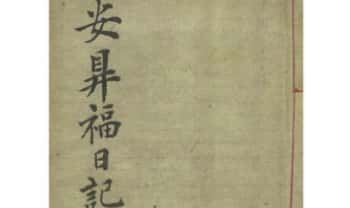 安鼎福日記